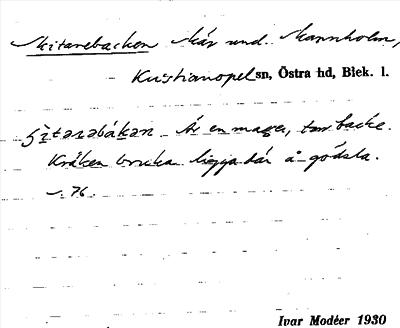 Skitarebacken skär und. Mannholm,
Kristianopel sn, Östra hd, Blek. l.
en mager, torr backe.
Kråken bruka ligga där å gödsla.
76.
Ivar Modéer 1930